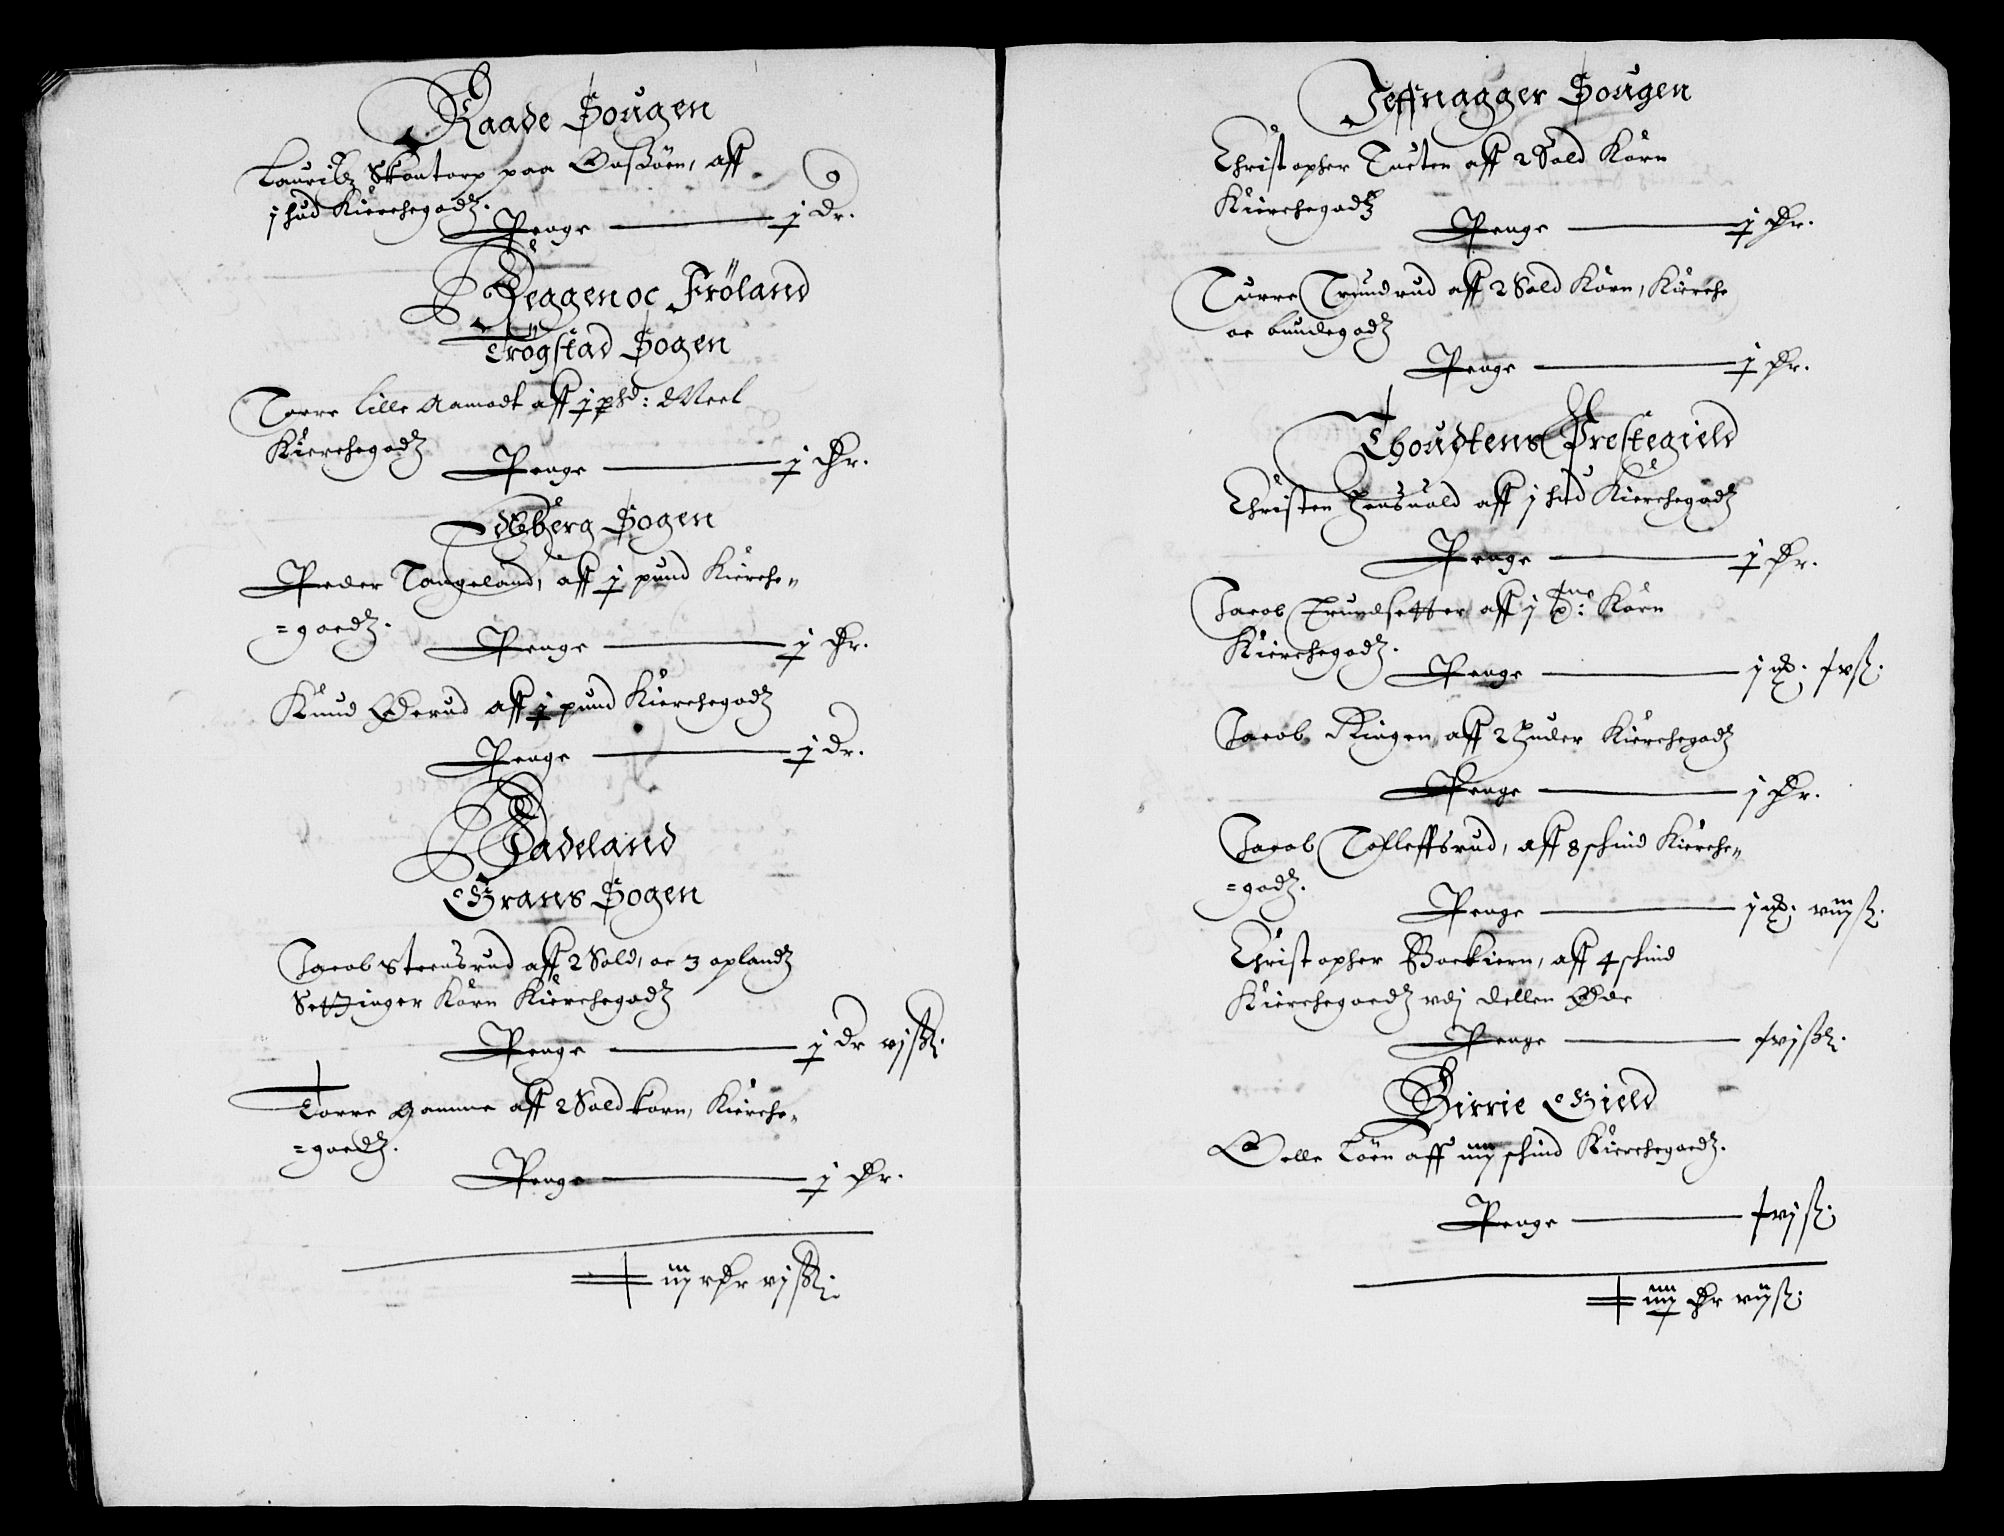 Raade Sougen
Lauritz Skontorp paa Oeshöen, aff
j hud Kierchegodtz.
Penge — j Dr.
Heggen oc Fröland
Trögstad Sogen
Torre lille Aamodt aff j phd: Meel
Kierchegodtz
Penge — j Dr.
Edtzberg Sogen
Peder Tangeland, aff j pund Kierche=
=goedtz.
Penge — j Dr.
Knud Øerud aff j pund Kierchegodtz
Penge — j Dr.
Hadeland
Grans Sogen
Jacob Steensrud aff 2 Sold, oc 3 oplandtz
Settinger Korn Kierchegodtz
Penge — j Dr vj ß.
Torre Gamme aff 2 Sold korn, Kierche=
=goedtz.
Penge — j Dr.
iiij r Dr vj ß.
Jeffnagger Sougen
Christopher Tueten aff 2 Sold Korn
Kierchegodtz
Penge — j Dr.
Torre Trundrud aff 2 Sold Korn, Kierche
oc bundegodtz
Penge — j Dr.
Thoudtens Prestegield
Christen Hensuold aff j hud Kierchegodtz
Penge — j Dr.
Jacob Trundsetter aff j tne: Korn
Kierchegodtz.
Penge — j mk: xv ß.
Jacob Ringen aff 2 Huder Kierchegodtz
Penge — j Dr.
Jacob Tolleffsrud, aff 8 schind Kierche=
=godtz.
Penge — j mk: viij ß.
Christopher Boekiern, aff 4 schind
Kierchegoedtz vdj dellen Øde
Penge — xvj ß.
Birrie Gield
Oelle Löen aff iiij schind Kierchegoedtz.
Penge — xvj ß.
iiij Dr vij ß.